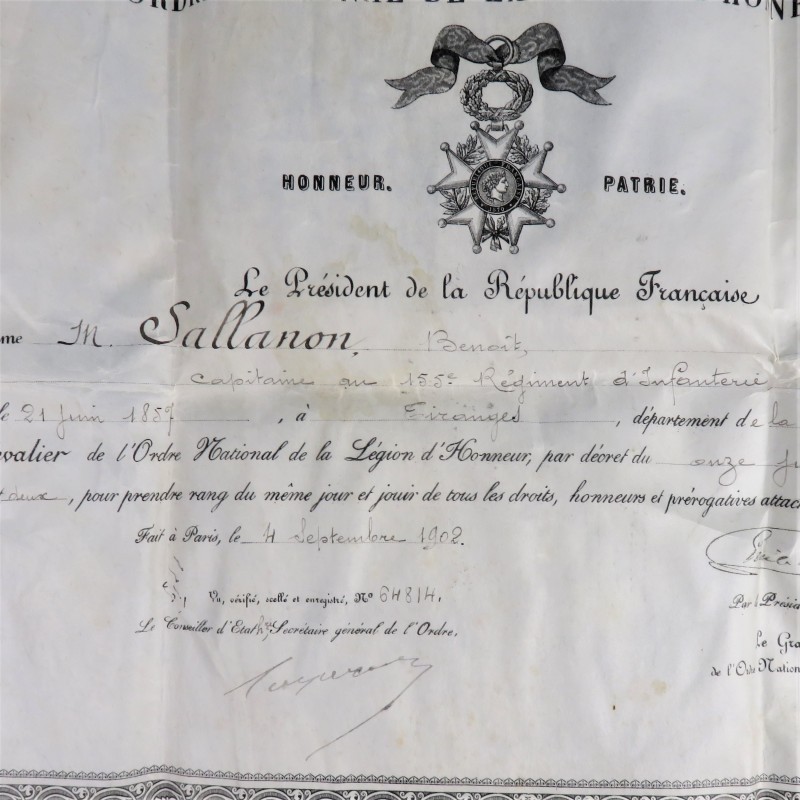 HONNEUR. PATRIE.
RÉPUBLIQUE FRANÇAISE
1870
Le Président de la République Française
M. Sallanon, Benoît,
Capitaine au 155e Régiment d'Infanterie,
le 21 Juin 1857, à Tiranges, département de la
valier de l'Ordre National de la Légion d'Honneur, par décret du onze
deux, pour prendre rang du même jour et jouir de tous les droits, honneurs et prérogatives attac
Fait à Paris, le 4 Septembre 1902.
Vu, vérifié, scellé et enregistré, No 64814.
Par l Présid
Le Conseiller d'Etat, Secrétaire général de l'Ordre.
Le Gra
de l'Ordre Nation